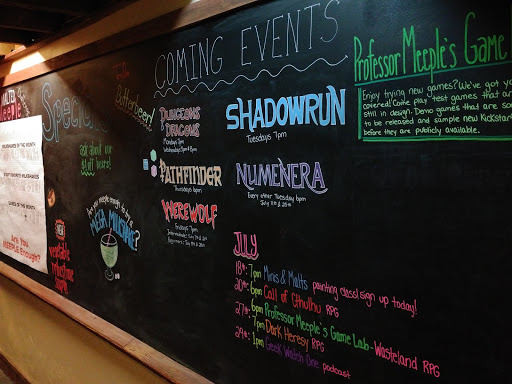 MALTED
Meeple
Are You
MEEPLE Enough?
Specials
ask about our
$1 off beers!
Butterbeer!
Are you meeple enough to try a
MEGA MILKSHAKE?
vegetable
COMING EVENTS
DUNGEONS
& DRAGONS
Mondays 7pm
PATHFINDER
Thursdays 6pm
WEREWOLF
Fridays 7pm
SHADOWRUN
Tuesdays 7pm
NUMENERA
Every other Tuesday 6pm
JULY
18th: 7pm Minis & Malts painting class! sign up today!
20th: 6pm Call of Cthulhu RPG
27th: 6pm Professor Meeple's Game Lab - Wasteland RPG
7pm Dark Heresy RPG
29th: 1pm Geek Watch One podcast
Professor Meeple's Game
Enjoy trying new games? We've got yo
covered! Come play test games that ar
still in design. Demo games that are soo
to be released and sample new Kickstar
before they are publicly available.